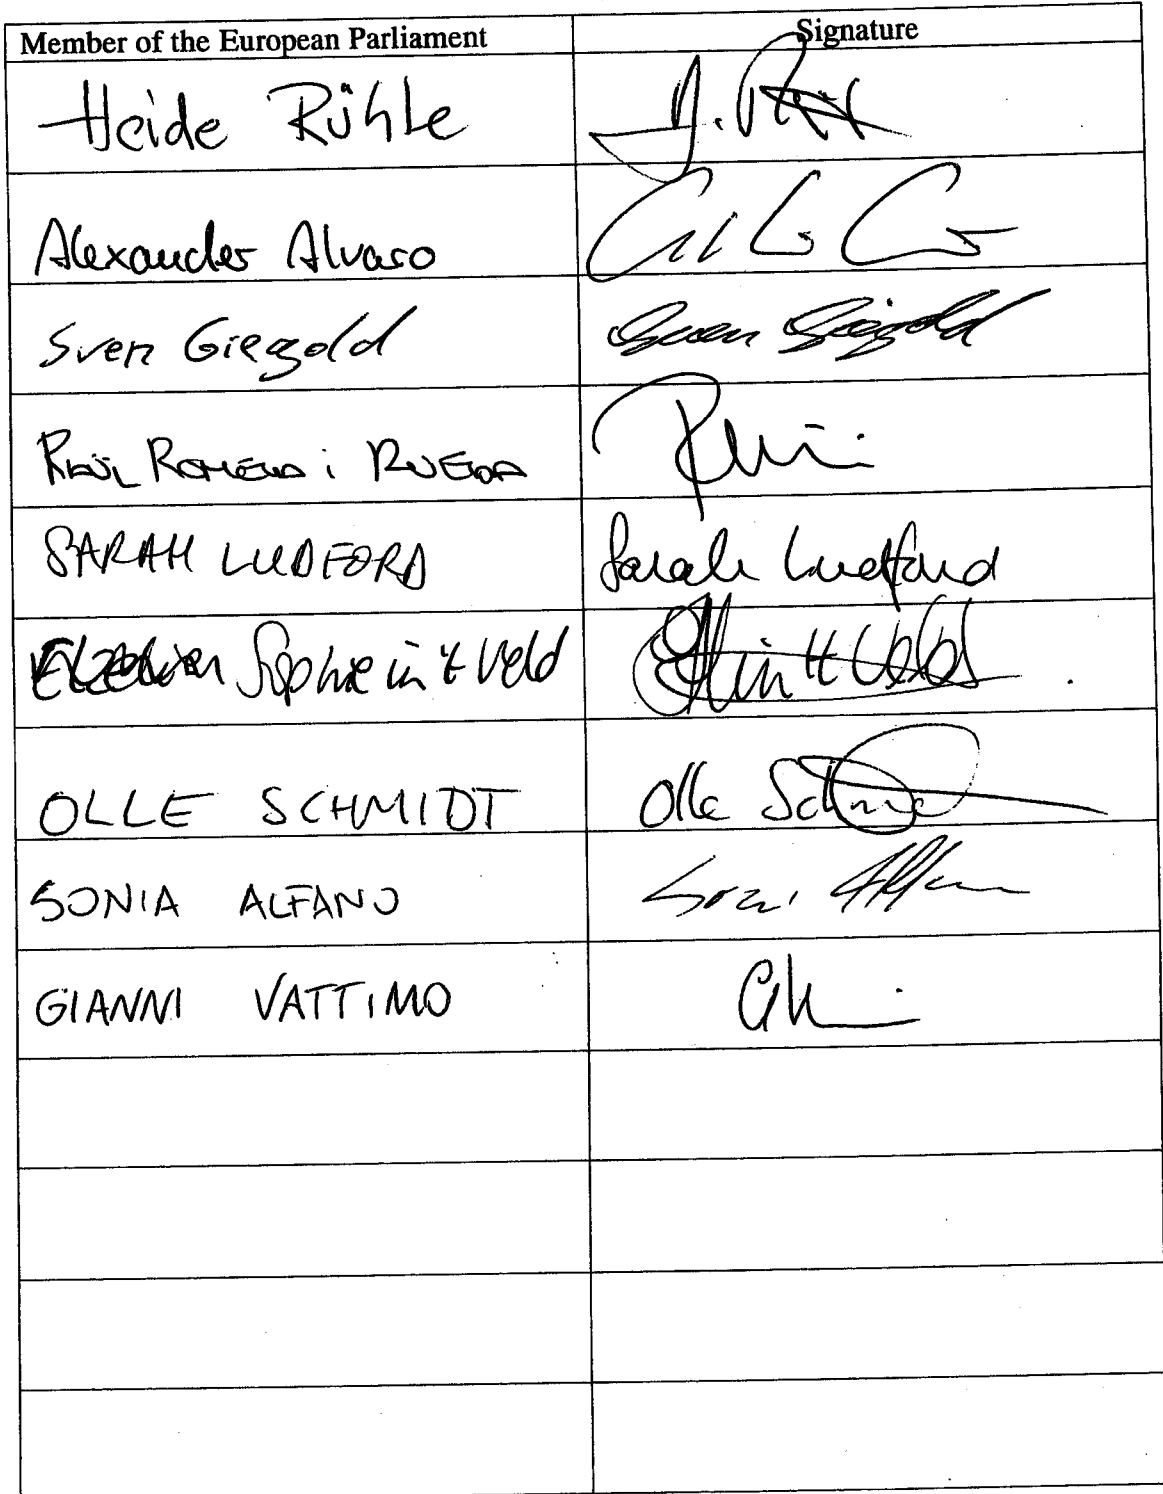 Member of the European Parliament Signature
Heide Rühle
Alexander Alvaro
Sven Giegold Sven Giegold
Raül Romeva i Rueda
SARAH LUDFORD Sarah Ludford
Sophie in 't Veld in 't Veld
OLLE SCHMIDT Olle
SONIA ALFANO
GIANNI VATTIMO